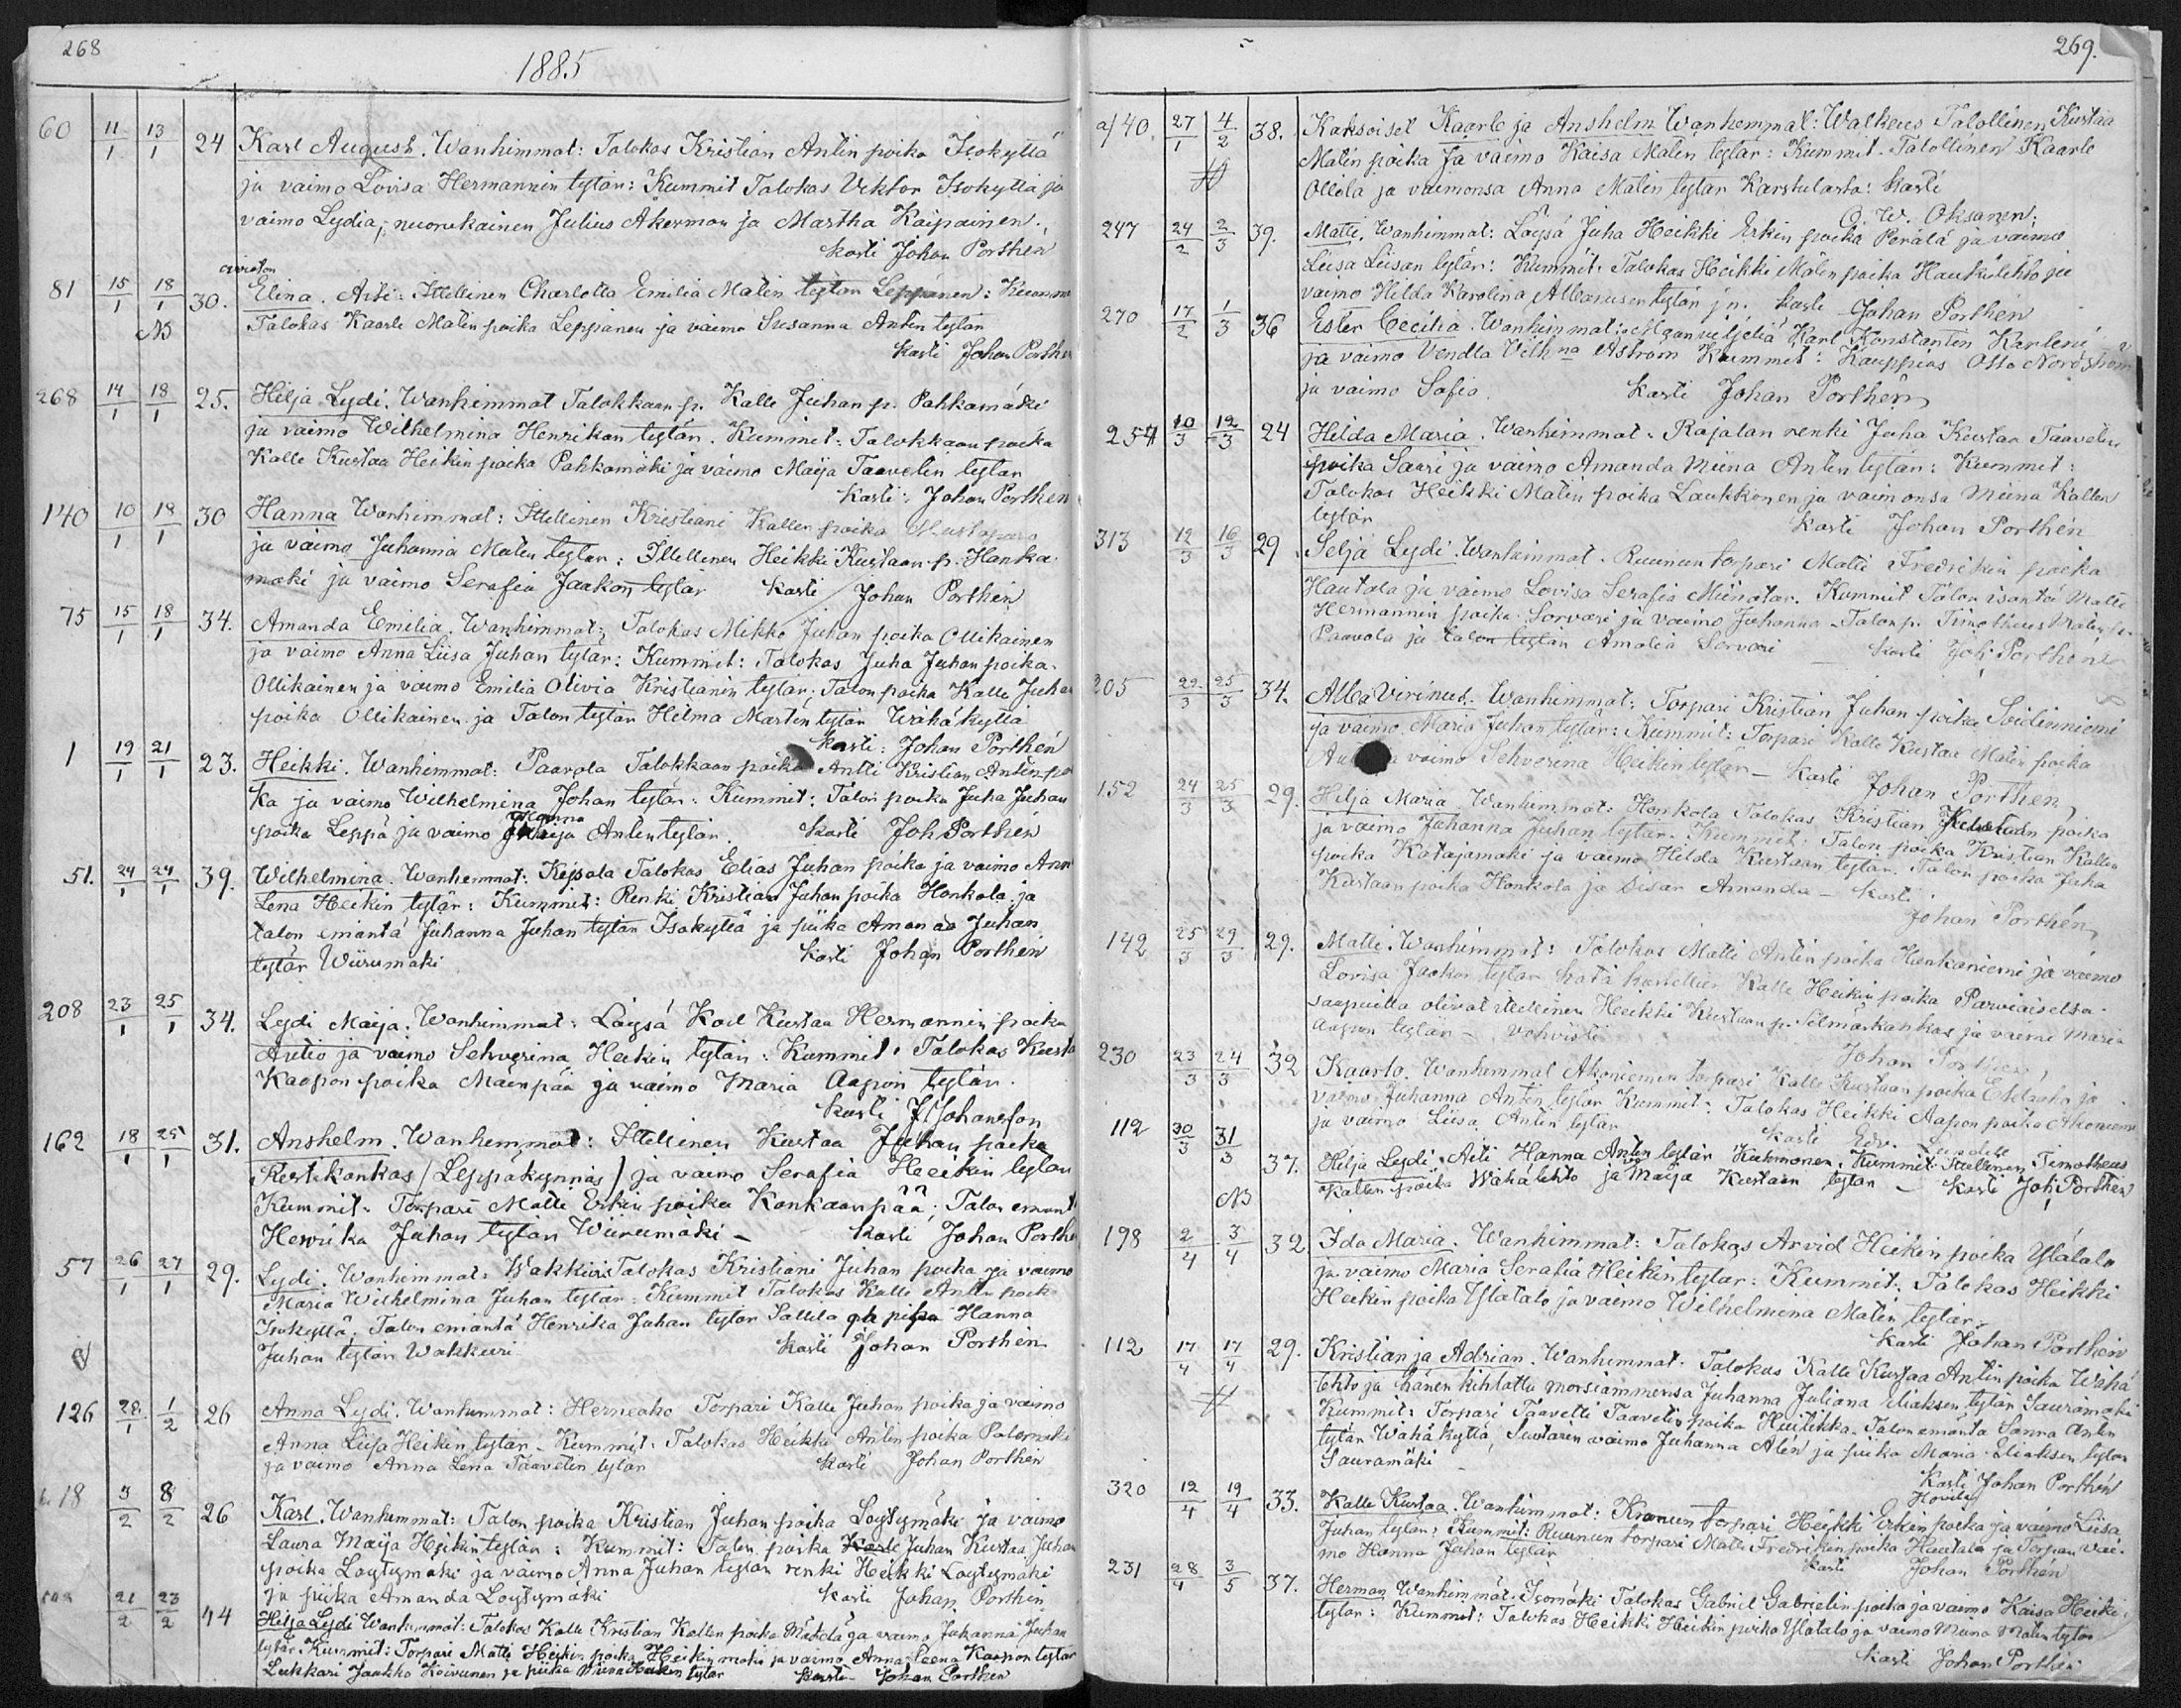 268
1885
60 11/1 13/1 24 Karl August. Wanhimmat: Talokas Kristian Antin poika Isokyttä
ja vaimo Lovisa Hermannin tytär: Kummit Talokas Viktor Isokyttä ja
vaimo Lydia, nuorukainen Julius Åkerman ja Martha Kaipainen.
kasti Johan Porthén
81 15/1 18/1 30. avioton
Elina. Äiti: Itellinen Charlotta Emilia Matin tytär Leppänen:
NB Talokas Kaarle Matin poika Leppänen ja vaimo Susanna Antin tytär
kasti Johan
268 14/1 18/1 25. Hilja Lydi. Wanhimmat Talokkaan p. Kalle Juhan p. Pahkamäki
ja vaimo Wilhelmina Henrikan tytär. Kummit: Talokkaan poika
Kalle Kustaa Heikin poika Pahkamäki ja vaimo Maija Taavetin tytär
kasti: Johan Porthén
140 10/1 18/1 30 Hanna Wanhimmat: Itellinen Kristiani Kallen poika
ja vaimo Juhanna Matin tytär: Itellinen Heikki Kustaan p. Hanka-
mäki ja vaimo Serafia Jaakon tytär kasti Johan Porthén
75 15/1 18/1 34. Amanda Emilia. Wanhimmat: Talokas Mikko Juhan poika Ollikainen
ja vaimo Anna Liisa Juhan tytär: Kummit: Talokas Juha Juhan poika
Ollikainen ja vaimo Emilia Olivia Kristianin tytär; Talon poika Kalle
poika Ollikainen ja Talon tytär Hilma Martin tytär Wähäkyttä
kasti: Johan Porthén
1 19/1 21/1 23. Heikki. Wanhimmat: Paavola Talokkaan poika Antti Kristian Antin po
ka ja vaimo Wilhelmina Johan tytär: Kummit: Talon poika Juha Juhan
poika Leppä ja vaimo Maija Antin tytär. kasti Joh. Porthén
51. 24/1 24/1 39. Wilhelmina. Wanhemmat: Keisala Talokas Elias Juhan poika ja vaimo Ann
Lena Heikin tytär: Kummit: Renki Kristian Juhan poika Honkola ja
talon emäntä Juhanna Juhan tytär Isokyttä ja piika Amanda Juhan
tytär Wiirumäki kasti Johan Porthén
208 23/1 25/1 34. Lydi Maija. Wanhimmat: Löysä Karl Kustaa Hermannin poika
Autio ja vaimo Sehverina Heikin tytär: Kummit: Talokas
Kaapon poika Mäenpää ja vaimo Maria Aapon tytär.
kasti J Johansson
162 18/1 25/1 31. Anshelm. Wanhemmat: Itellinen Kustaa Juhan poika
Kertikankas /Leppäkynnäs/ ja vaimo Serafia Heikin tytär
Kummit: Torpari Matti Erkin poika Kankaanpää; Talon emänt
Henrika Juhan tytär Wiirumäki – kasti Johan
57 26/1 27/1 29. Lydi. Wanhimmat: Wakkuri Talokas Kristiani Juhan poika ja vaimo
Maria Wilhelmina Juhan tytär: Kummit Talokas Kalle Antin poik
Isokyttä. Talon emäntä Henrika Juhan tytär Sallila ja piika Hanna
Juhan tytär Wakkuri kasti Johan Porthén
126 28/1 1/2 26 Anna Lydi. Wanhemmat: Herneaho Torpari Kalle Juhan poika ja vaimo
Anna Liisa Heikin tytär – Kummit: Talokas Heikki Antin poika Palomäki
ja vaimo Anna Lena Taavetin tytär kasti Johan Porthén
18 5/2 8/2 26 Karl. Wanhemmat: Talon poika Kristian Juhan poika Löytymäki ja vaimo
Laura Maija Heikin tytär: Kummit: Talon poika Karl Juhan Kustaa Juhan
poika Löytymäki ja vaimo Anna Juhan tytär renki Heikki Löytymäki
ja piika Amanda Löytymäki kasti Johan Porthén
21/2 23/2 44 Hilja Lydi Wanhimmat: Talokas Kalle Kristian Kallen poika Mättälä ja vaimo Juhanna Juhan
tytär. Kummit: Torpari Matti Heikin poika Heikinmäki ja vaimo Anna Leena Kaapon tytär
Lukkari Jaakko Koivunen ja piika Miina Heikin tytär kasti Johan Porthén
269.
a/40. 27/1 4/2 38. Kaksoiset Kaarle ja Anshelm Wanhemmat: Walkeus Talollinen Kustaa
Matin poika ja vaimo Kaisa Matin tytär: Kummit. Talollinen Kaarle
Ollila ja vaimonsa Anna Matin tytär Karstulasta: kasti
O. W. Oksanen:
247 24/2 2/3 39. Matti. Wanhimmat: Löysä Juha Heikki Erkin poika Perälä ja vaimo
Liisa Liisan tytär: Kummit: Talokas Heikki Matin poika Haukilehto ja
vaimo Hilda Karolina Albanusen tytär j.n. kasti Johan Porthén
270 17/2 1/3 36 Ester Cecilia. Wanhimmat: Maanviljeliä Karl Konstantin Karleni
ja vaimo Vendla Vilh:na Åström Kummit: Kauppias Otto Nordström
ja vaimo Sofia. kasti Johan Porthén
254 10/3 12/3 24 Hilda Maria. Wanhimmat: Rajalan renki Juha Kustaa Taavetin
poika Saari ja vaimo Amanda Miina Antin tytär: Kummit:
Talokas Heikki Matin poika Laukkonen ja vaimonsa Miina Kallen
tytär kasti Johan Porthén
313 12/3 16/3 29 Seljä Lydi. Wanhimmat. Ruunun torpari Matti Fredrikin poika
Hautala ja vaimo Lovisa Serafia Miinatar. Kummit Talon isäntä Matti
Hermannin poika Sorvari ja vaimo Juhanna – Talon p. Timotheus Matin p.
Paavola ja talon tytär Amalia Sorvari kasti Joh Porthén
205 22/3 25/3 34. Alba Virinus. Wanhimmat: Torpari Kristian Juhan poika Soidinniemi
ja vaimo Maria Juhan tytär: Kummit: Torpari Kalle Kustaa Matin poika
vaimo Sehverina Heikin tytär – kasti Johan Porthén
152 24/3 25/3 29. Hilja Maria. Wanhimmat: Honkola Talokas Kristian Kustaan poika
ja vaimo Johanna Juhan tytär. Kummit: Talon poika Kristian Kallen
poika Katajamäki ja vaimo Hilda Kustaan tytär. Talon poika Juha
Kustaan poika Honkola ja sisar Amanda – kasti
Johan Porthén
142 25/3 29/3 29. Matti. Wanhimmat: Talokas Matti Antin poika Hankaniemi ja vaimo
Lovisa Jaakon tytär hätä Kalle Heikin poika Parviaiselta.
saapuilla olivat itellinen Heikki Kustaan p. Silmäskankas ja vaimo Maria
Aapon tytär – vahvisti
Johan Porthén
230 23/3 24/3 32 Kaarlo. Wanhimmat Akoniemen torpari Kalle Kustaan poika Eteläaho ja
vaimo Juhanna Antin tytär Kummit: Talokas Heikki Aapon poika Akoniemi
ja vaimo Liisa Antin tytär kasti Edv.
112 30/3 31/3 37. Hilja Lydi. Äiti Hanna Antin tytär Kuhmonen. Kummit Itellinen Timotheus
NB Kallen poika Wähälehto ja Maija Kustaan tytär – kasti Joh Porthén
198 2/4 3/4 32 Ida Maria. Wanhimmat: Talokas Arvid Heikin poika Ylätalo
ja vaimo Maria Serafia Heikin tytär: Kummit: Talokas Heikki
Heikin poika Ylätalo ja vaimo Wilhelmina Matin tytär
kasti Johan Porthén
112 17/4 17/4 29. Kristian ja Adrian. Wanhimmat. Talokas Kalle Kustaa Antin poika Wähä
lehto ja hänen kihlattu morsiammensa Juhanna Juliana Eliaksen tytär Sauramäki
Kummit: Torpari Taavetti Taavetin poika Huitikka. Talon emäntä Sanna Antin
tytär Wähäkyttä, Suutarin vaimo Juhanna Alén ja piika Maria Eliaksen tytär
Sauramäki – kasti Johan Porthén
320 12/4 19/4 33. Kalle Kustaa. Wanhimmat: Kruunun torpari Heikki Erkin poika ja vaimo Liisa
Juhan tytär: Kummit: Ruunun torpari Matti Fredrikin poika Hautala ja Torpan vai-
mo Hanna Juhan tytär kasti Johan Porthén
231 28/4 3/5 37. Herman Wanhimmat: Isomäki Talokas Gabriel Gabrielin poika ja vaimo Kaisa Heikin
tytär: Kummit: Talokas Heikki Heikin poika Ylätalo ja vaimo Miina Matin tytär
kasti Johan Porthén